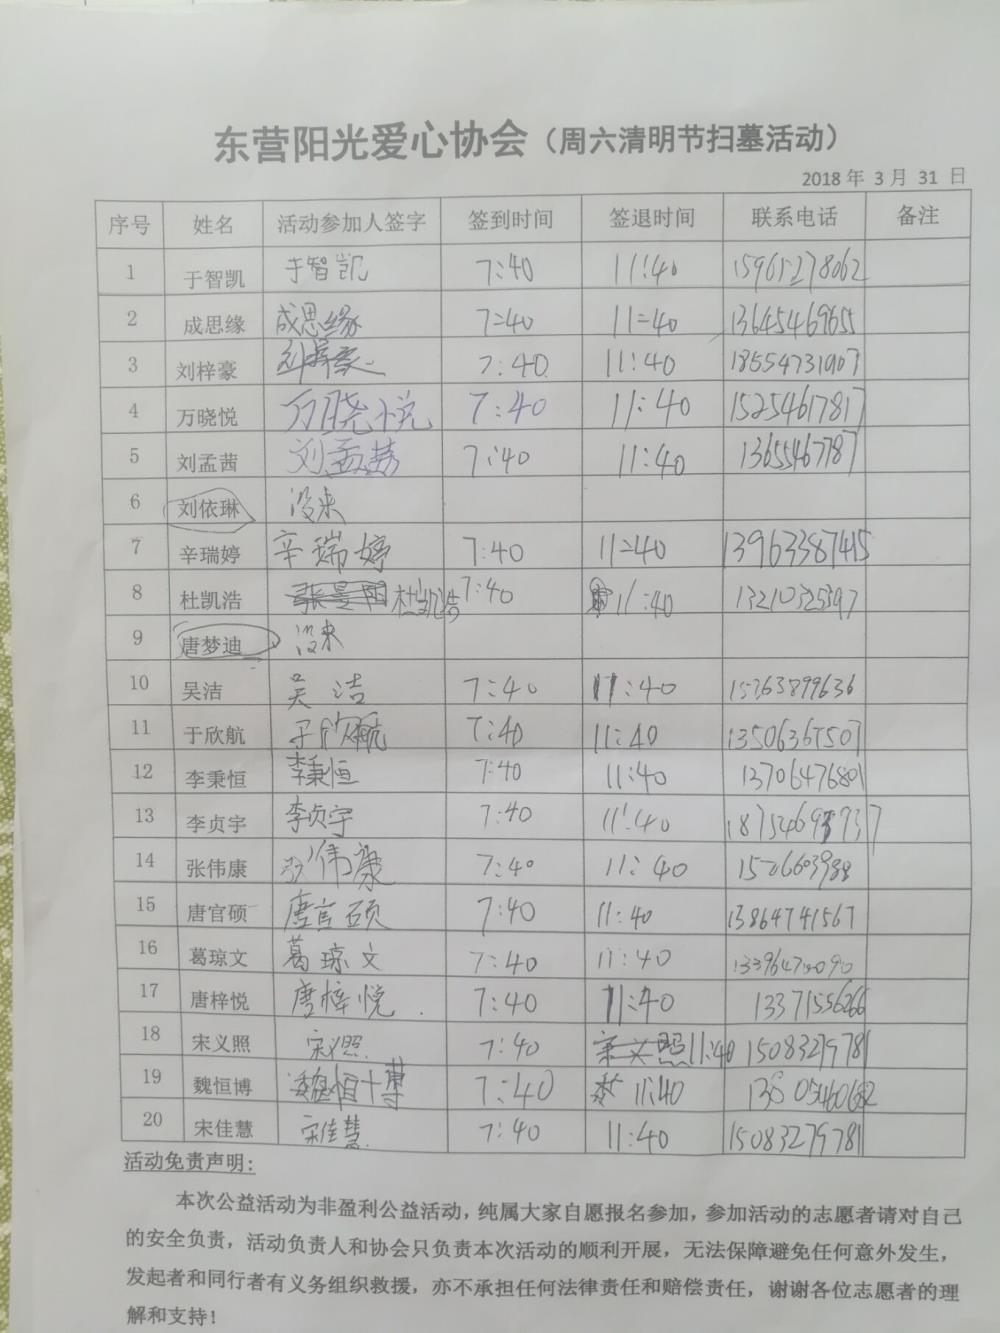 东营阳光爱心协会（周六清明节扫墓活动）
2018 年 3 月 31 日
序号 姓名 活动参加人签字 签到时间 签退时间 联系电话 备注
1 于智凯 于智凯 7:40 11:40 15965278062
2 成思缘 成思缘 7=40 11=40 13645469655
3 刘梓豪 刘梓豪 7:40 11:40 18554731907
4 万晓悦 万晓悦 7:40 11:40 15254617817
5 刘孟茜 刘孟茜 7:40 11:40 13655467787
6 刘依琳 没来
7 辛瑞婷 辛瑞婷 7:40 11=40 13963387415
8 杜凯浩 杜凯浩 7:40 11:40 13210325397
9 唐梦迪 没来
10 吴洁 吴洁 7:40 11:40 15263899636
11 于欣航 于欣航 7:40 11:40 13506367507
12 李秉恒 李秉恒 7:40 11:40 13706476801
13 李贞宇 李贞宇 7:40 11:40
14 张伟康 张伟康 7:40 11:40
15 唐官硕 唐官硕 7:40 11:40 13864741567
16 葛琼文 葛琼文 7:40 11:40
17 唐梓悦 唐梓悦 7:40 11:40 13371556266
18 宋义照 宋义照 7:40 11:40 15083279781
19 魏恒博 魏恒博 7:40 11:40
20 宋佳慧 宋佳慧 7:40 11:40 15083279781
活动免责声明:
本次公益活动为非盈利公益活动，纯属大家自愿报名参加，参加活动的志愿者请对自己
的安全负责，活动负责人和协会只负责本次活动的顺利开展，无法保障避免任何意外发生，
发起者和同行者有义务组织救援，亦不承担任何法律责任和赔偿责任，谢谢各位志愿者的理
解和支持！